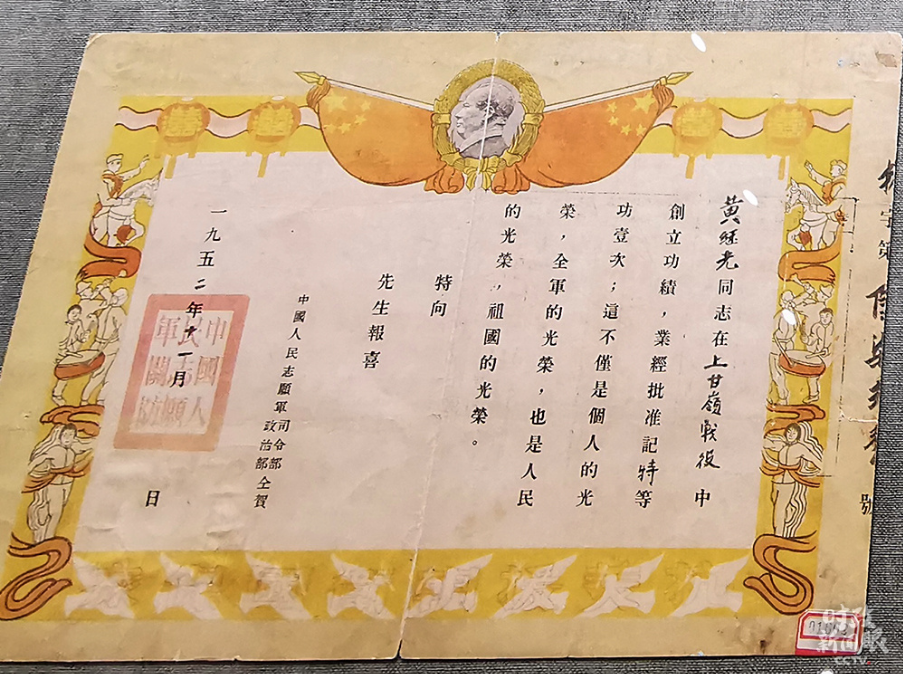 黃继光同志在上甘嶺戰役中
創立功績，業經批准記特等
功壹次；這不僅是個人的光
榮，全軍的光榮，也是人民
的光榮，祖國的光榮。
特向
先生報喜
中國人民志願軍司令部
政治部仝賀
一九五二年十一月 日
中國人
民志願
軍關防
字第
號
01652
CCTV